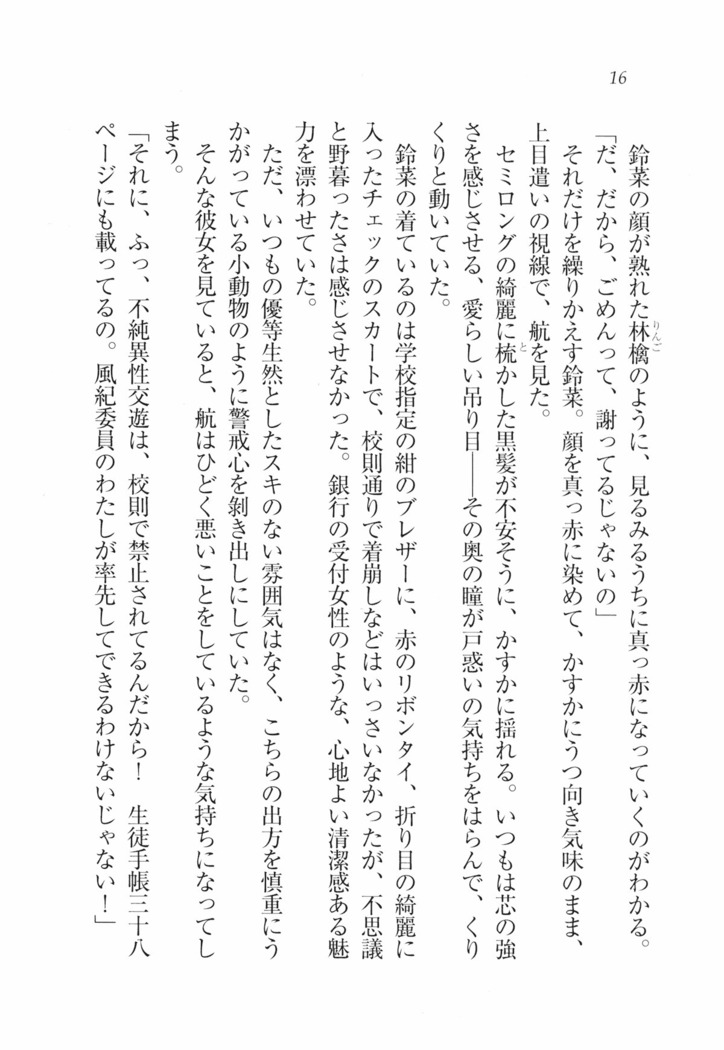 16
鈴菜の顔が熟れた林檎のように、見るみるうちに真っ赤になっていくのがわかる。
「だ、だから、ごめんって、謝ってるじゃないの」
それだけを繰りかえす鈴菜。顔を真っ赤に染めて、かすかにうつ向き気味のまま、
上目遣いの視線で、航を見た。
セミロングの綺麗に梳かした黒髪が不安そうに、かすかに揺れる。いつもは芯の強
さを感じさせる、愛らしい吊り目――その奥の瞳が戸惑いの気持ちをはらんで、くり
くりと動いていた。
鈴菜の着ているのは学校指定の紺のブレザーに、赤のリボンタイ、折り目の綺麗に
入ったチェックのスカートで、校則通りで着崩しなどはいっさいなかったが、不思議
と野暮ったさは感じさせなかった。銀行の受付女性のような、心地よい清潔感ある魅
力を漂わせていた。
ただ、いつもの優等生然としたスキのない雰囲気はなく、こちらの出方を慎重にう
かがっている小動物のように警戒心を剝き出しにしていた。
そんな彼女を見ていると、航はひどく悪いことをしているような気持ちになってし
まう。
「それに、ふっ、不純異性交遊は、校則で禁止されてるんだから！　生徒手帳三十八
ページにも載ってるの。風紀委員のわたしが率先してできるわけないじゃない！」